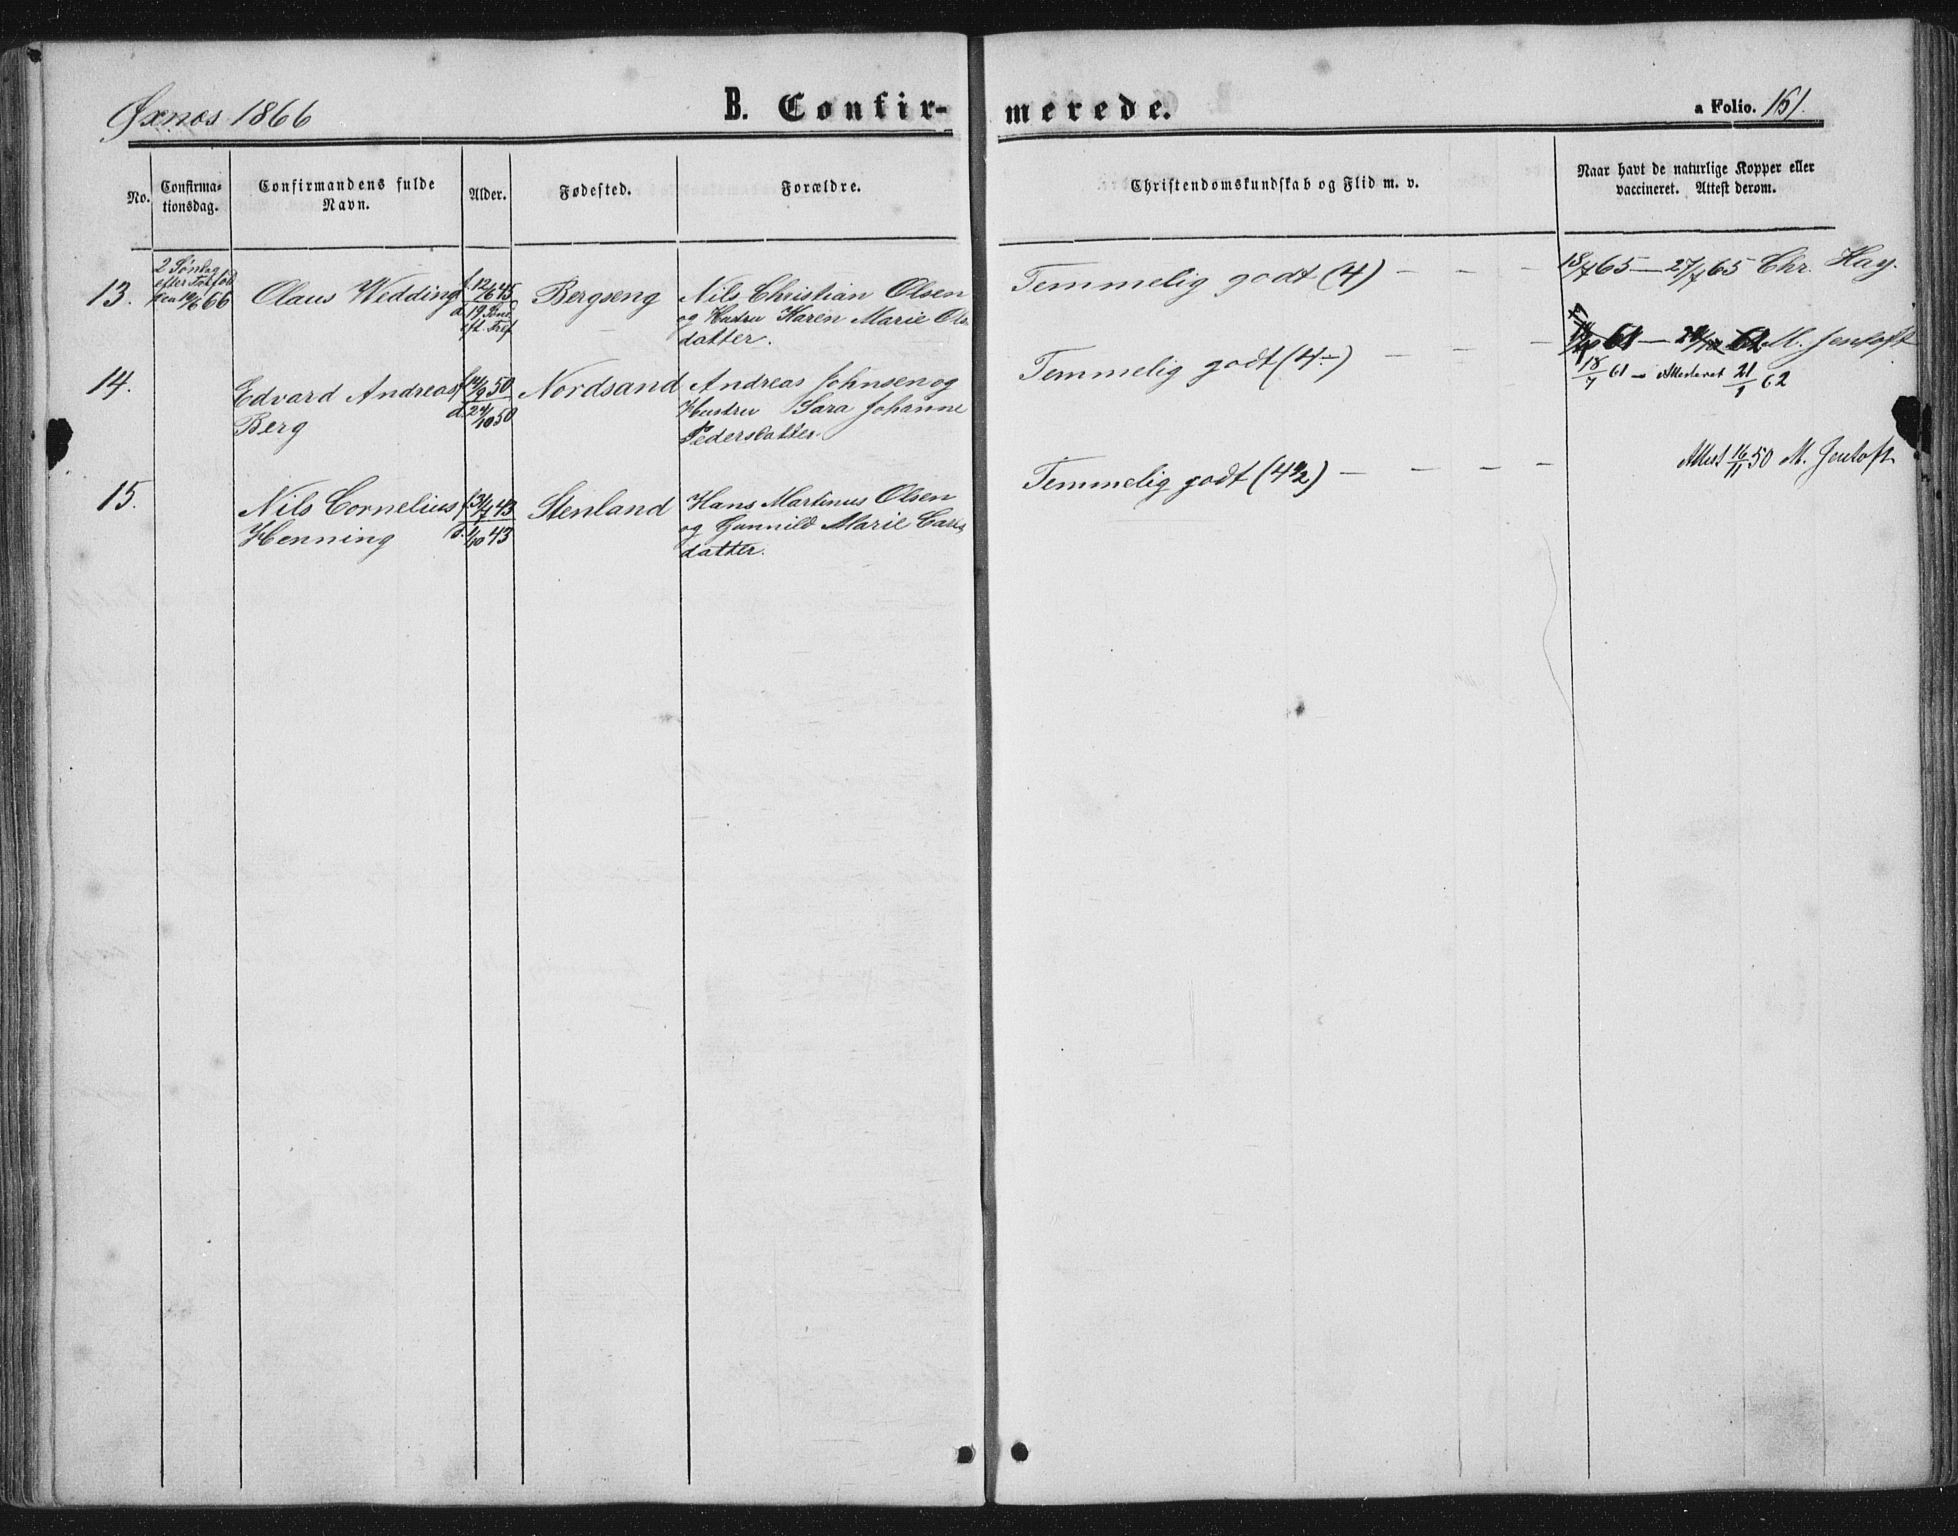 Øxnes 1866
B. Confir-
merede.
a Folio. 161.
No.
Confirma-
tionsdag.
Confirmandens fulde
Navn.
Alder.
Fødested.
Forældre.
Christendomskundskab og Flid m. v.
Naar havt de naturlige Kopper eller
vaccineret. Attest derom.
13.
2 Søndag
efter
10/6 66
Olaus Wedding
f. 12/6 45
d. 19 Sønd
eft. Tref
Bergseng
Nils Christian Olsen
og Hustru Karen Marie Ols
datter.
Temmelig godt (4) — — — —
18/7 65 — 27/7 65 Chr. Hay.
14.
Edvard Andreas
Berg
f. 14/9 50
d. 24/10 50
Nordsand
Andreas Johnsen og
Hustru Sara Johanne
Pedersdatter
Temmelig godt (4-) — — — —
M. Jentoft
18/7 61 — Attesteret 21/1 62
15.
Nils Cornelius
Henning
f. 31/7 43
d. 1/10 43
Stenland
Hans Martinus Olsen
og Gunnild Marie Carls
datter.
Temmelig godt (4½) — — — —
Attest 16/11 50 M. Jentoft